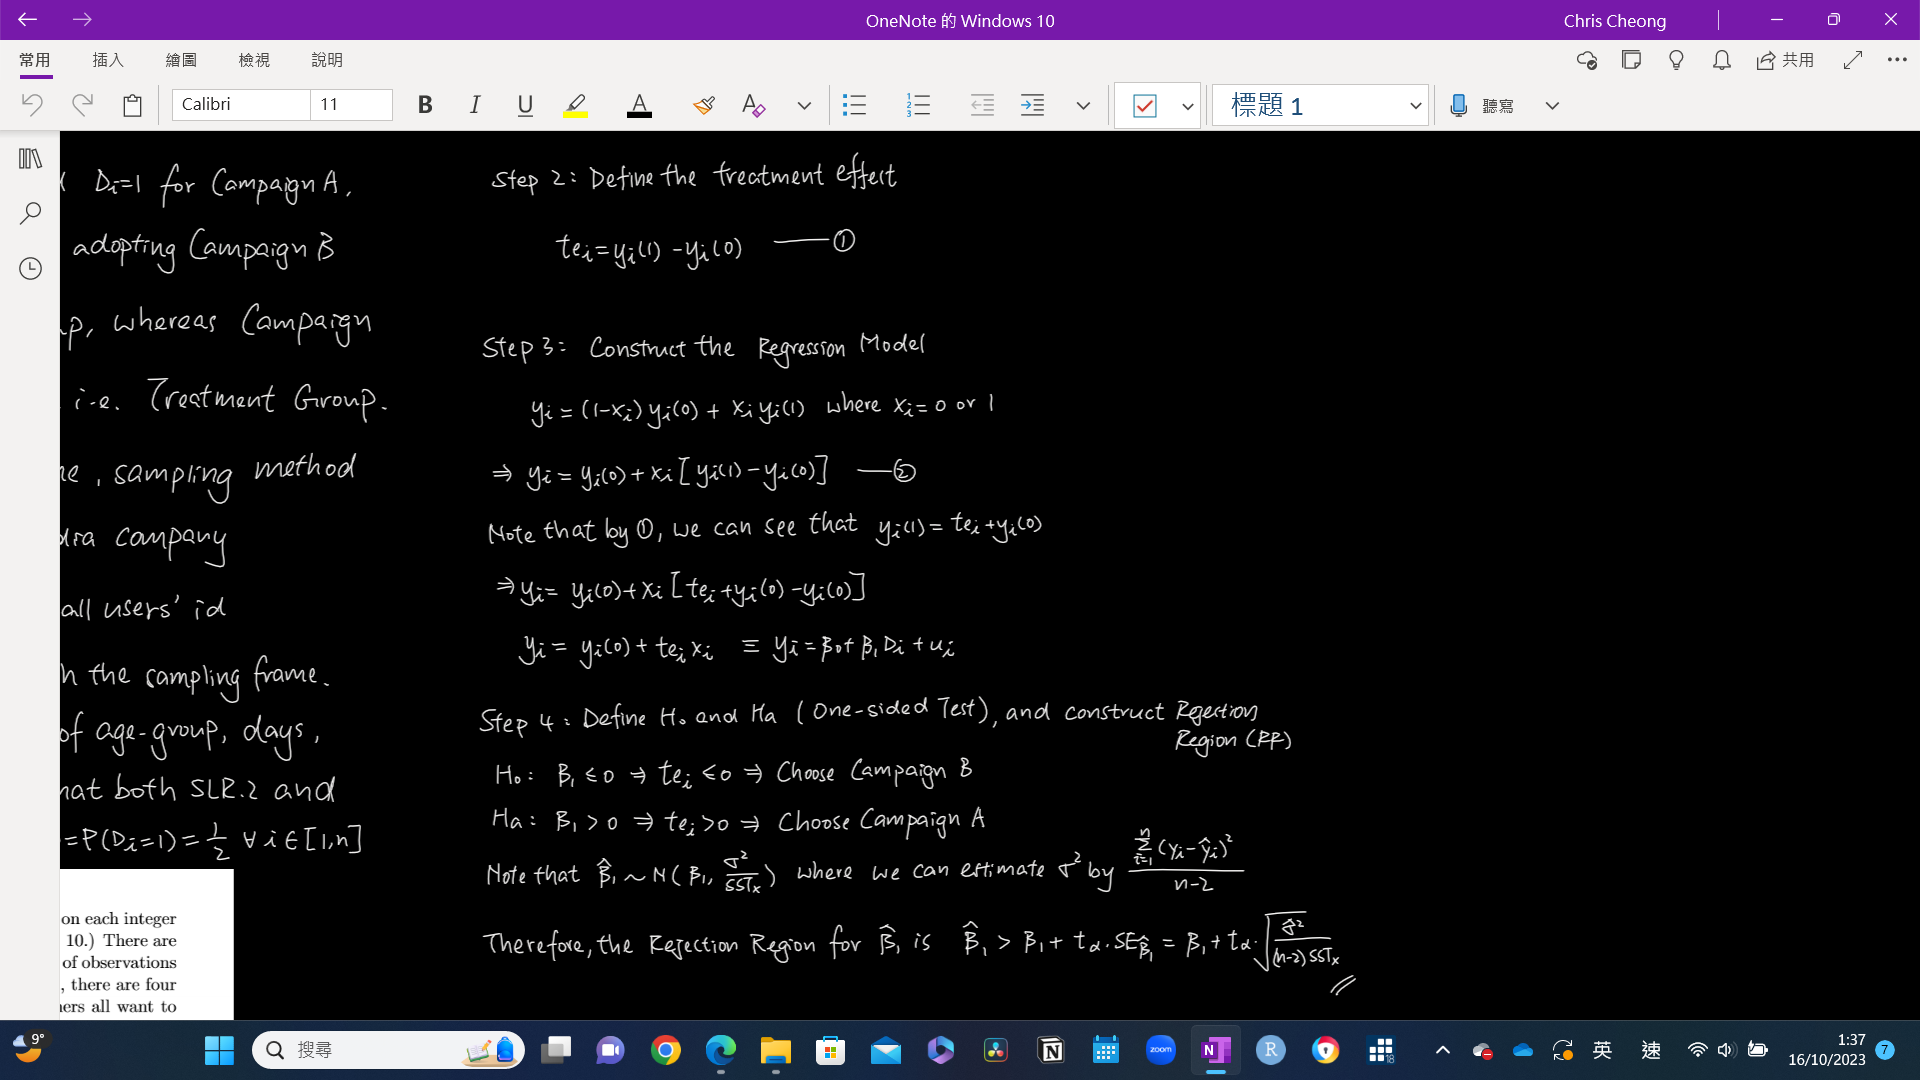 OneNote 的 Windows 10
Chris Cheong
常用
插入
繪圖
檢視
說明
共用
Calibri
11
B
I
U
標題 1
聽寫
Di=1 for Campaign A,
adopting Campaign B
up, whereas Campaign
i.e. Treatment Group.
me, sampling method
dia company
all users' id
h the sampling frame.
of age-group, days,
hat both SLR.2 and
=P(Di=1)=1/2 ∀ i ∈ [1,n]
on each integer
10.) There are
of observations
, there are four
ners all want to
Step 2: Define the treatment effect
tei = yi(1) - yi(0) —— ①
Step 3: Construct the Regression Model
yi = (1-xi) yi(0) + xi yi(1) where xi = 0 or 1
⇒ yi = yi(0) + xi [yi(1) - yi(0)] —— ②
Note that by ①, we can see that yi(1) = tei + yi(0)
⇒ yi = yi(0) + xi [tei + yi(0) - yi(0)]
yi = yi(0) + tei xi ≡ yi = β0 + β1 Di + ui
Step 4: Define H0 and Ha (One-sided Test), and construct Rejection
Region (RR)
H0: β1 ≤ 0 ⇒ tei ≤ 0 ⇒ Choose Campaign B
Ha: β1 > 0 ⇒ tei > 0 ⇒ Choose Campaign A
Note that β̂1 ~ N(β1, σ²/SSTx) where we can estimate σ² by Σ_{i=1}^{n} (yi - ŷi)² / (n-2)
Therefore, the Rejection Region for β̂1 is β̂1 > β1 + tα · SE_β̂1 = β1 + tα · √(σ̂²/((n-2)SSTx))
9°
搜尋
zoom
N
R
18
英
速
1:37
16/10/2023
7